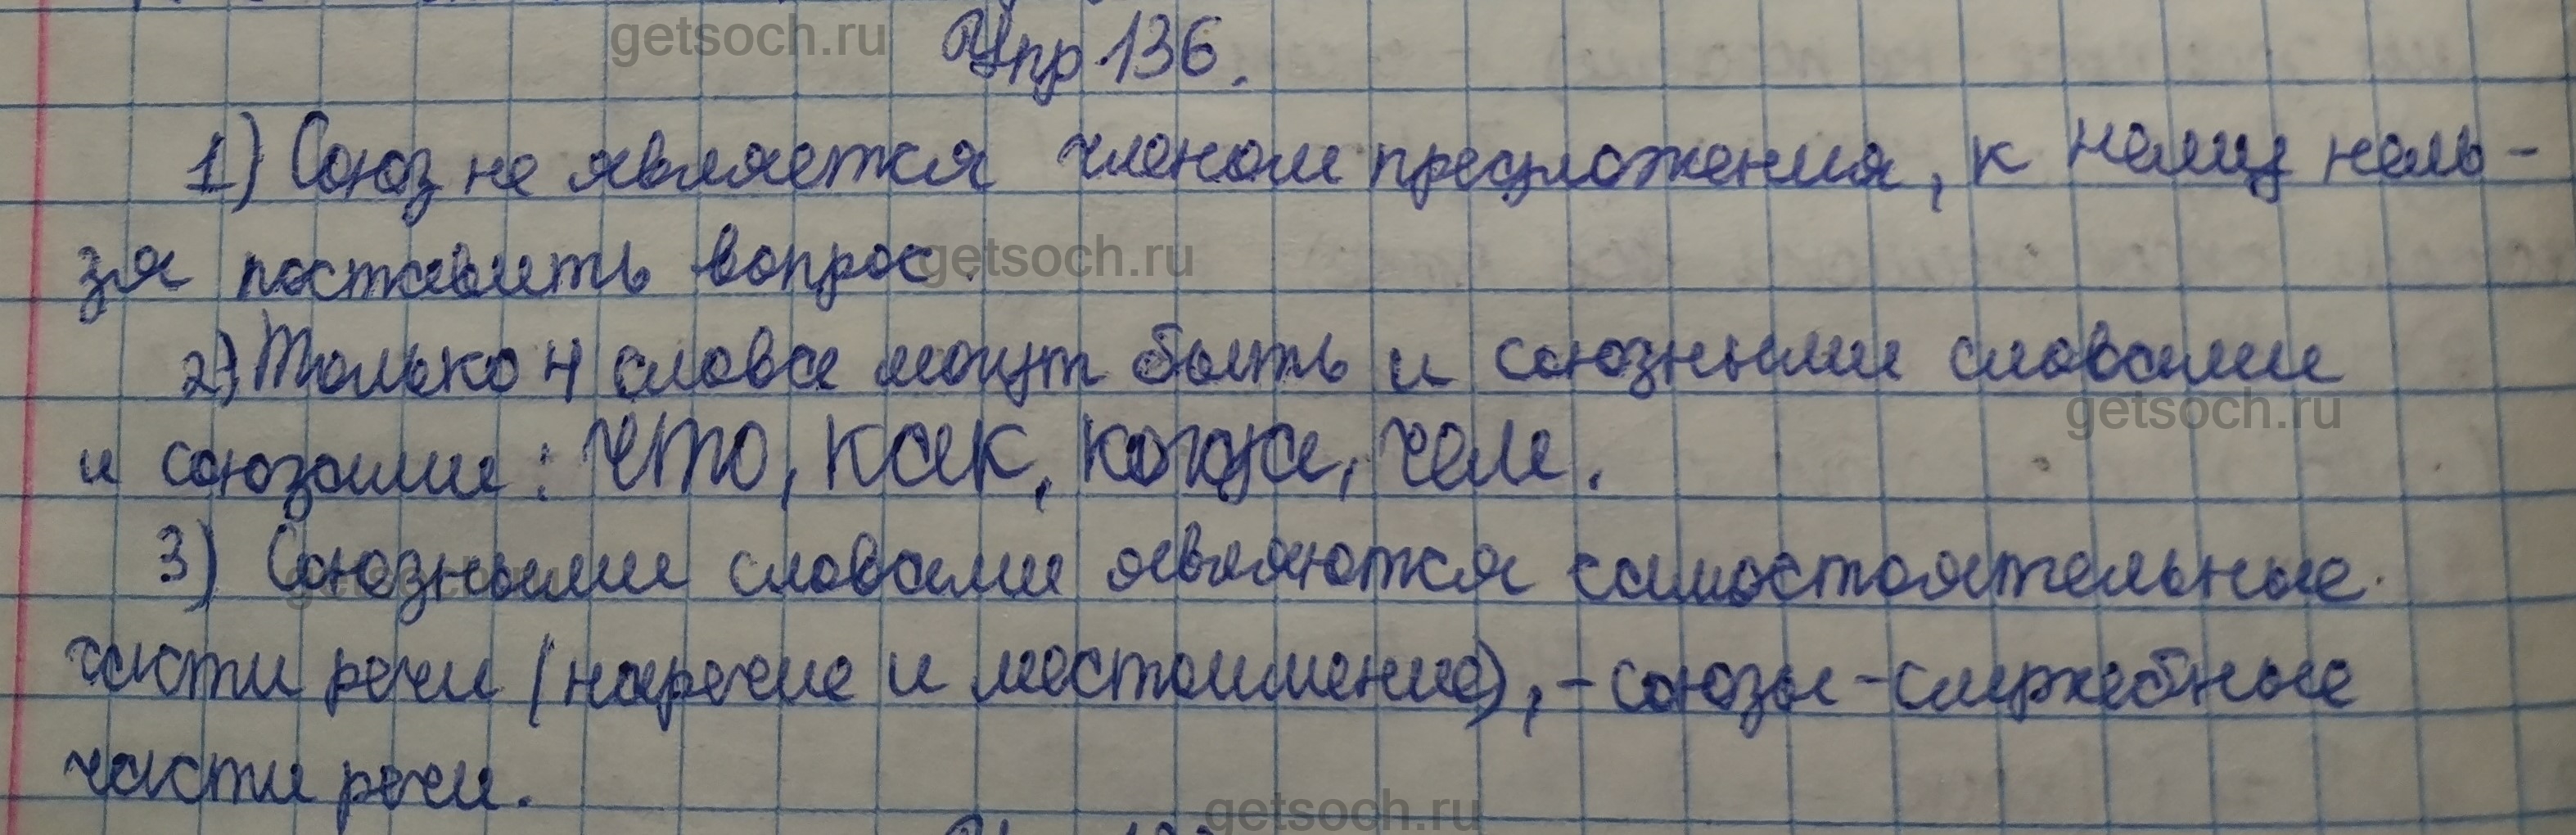 getsoch.ru
Упр 136.
1) Союз не является членом предложения, к нему нель-
зя поставить вопрос.
getsoch.ru
2) Только 4 слова могут быть и союзными словами
getsoch.ru
и союзами: что, как, когда, чем.
3) Союзными словами являются самостоятельные
части речи (наречие и местоимение), - союзы - служебные
части речи.
getsoch.ru